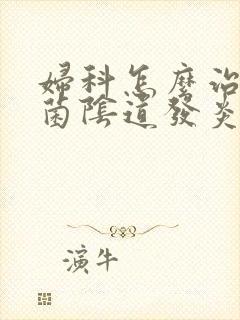 婦科怎麽治
菌陰道發炎
演牛